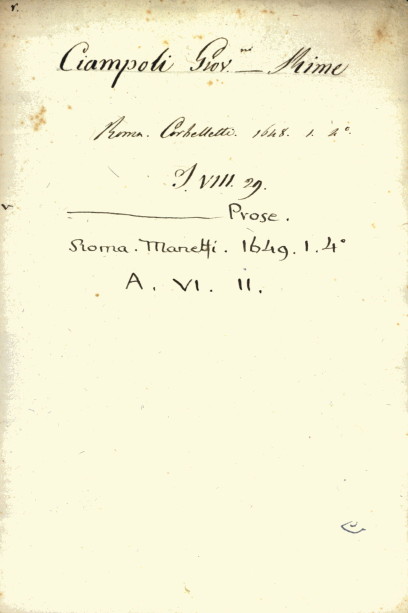 Ciampoli Giov.ni — Rime
Roma. Corbelletti. 1648. 1. 4°.
I. VIII. 29.
———— Prose.
Roma. Manelfi. 1649. 1. 4°
A. VI. 11.